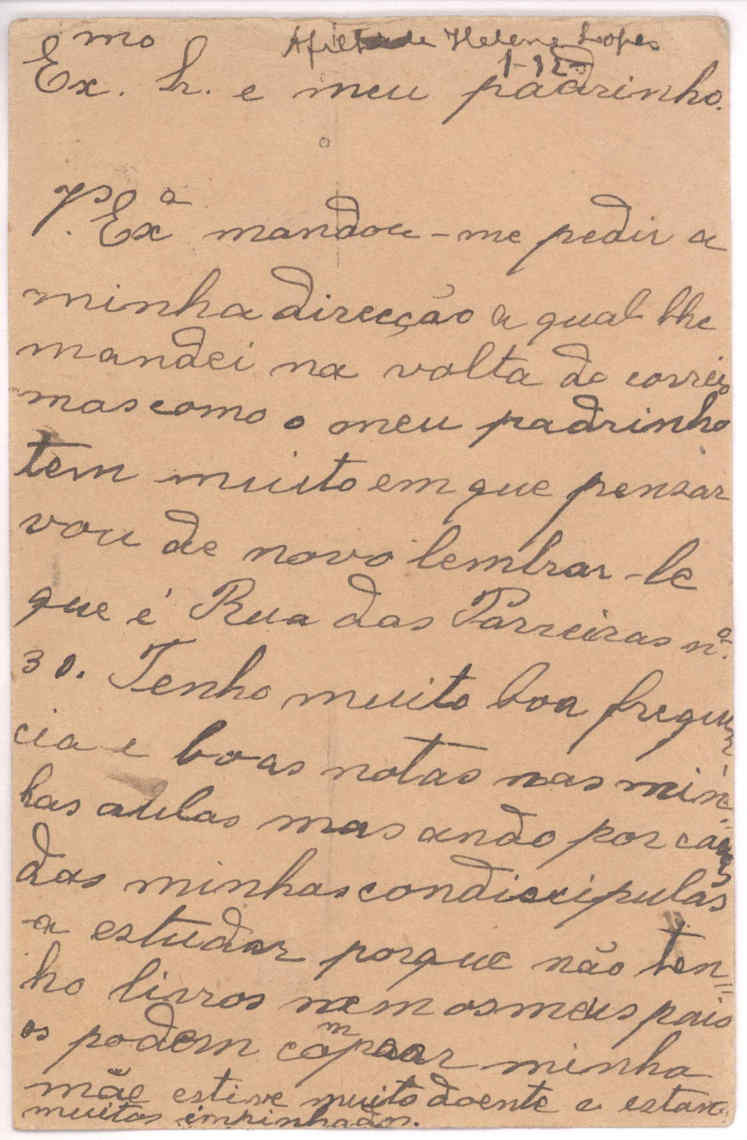 Afilhada Helena Lopes
1-12
Ex.mo Sr. e meu padrinho.
V. Exª mandou-me pedir a
minha direcção a qual lhe
mandei na volta do correio
mas como o meu padrinho
tem muito em que pensar
vou de novo lembrar-le
que é Rua das Parreiras nº.
30. Tenho muito boa frequen
cia e boas notas nas min=
has aulas mas ando por casas
das minhas condiscipulas
a estudar porque não ten=
ho livros nem os meus pais
os podem comprar minha
mãe esteve muito doente e estam
muitos impinhados.